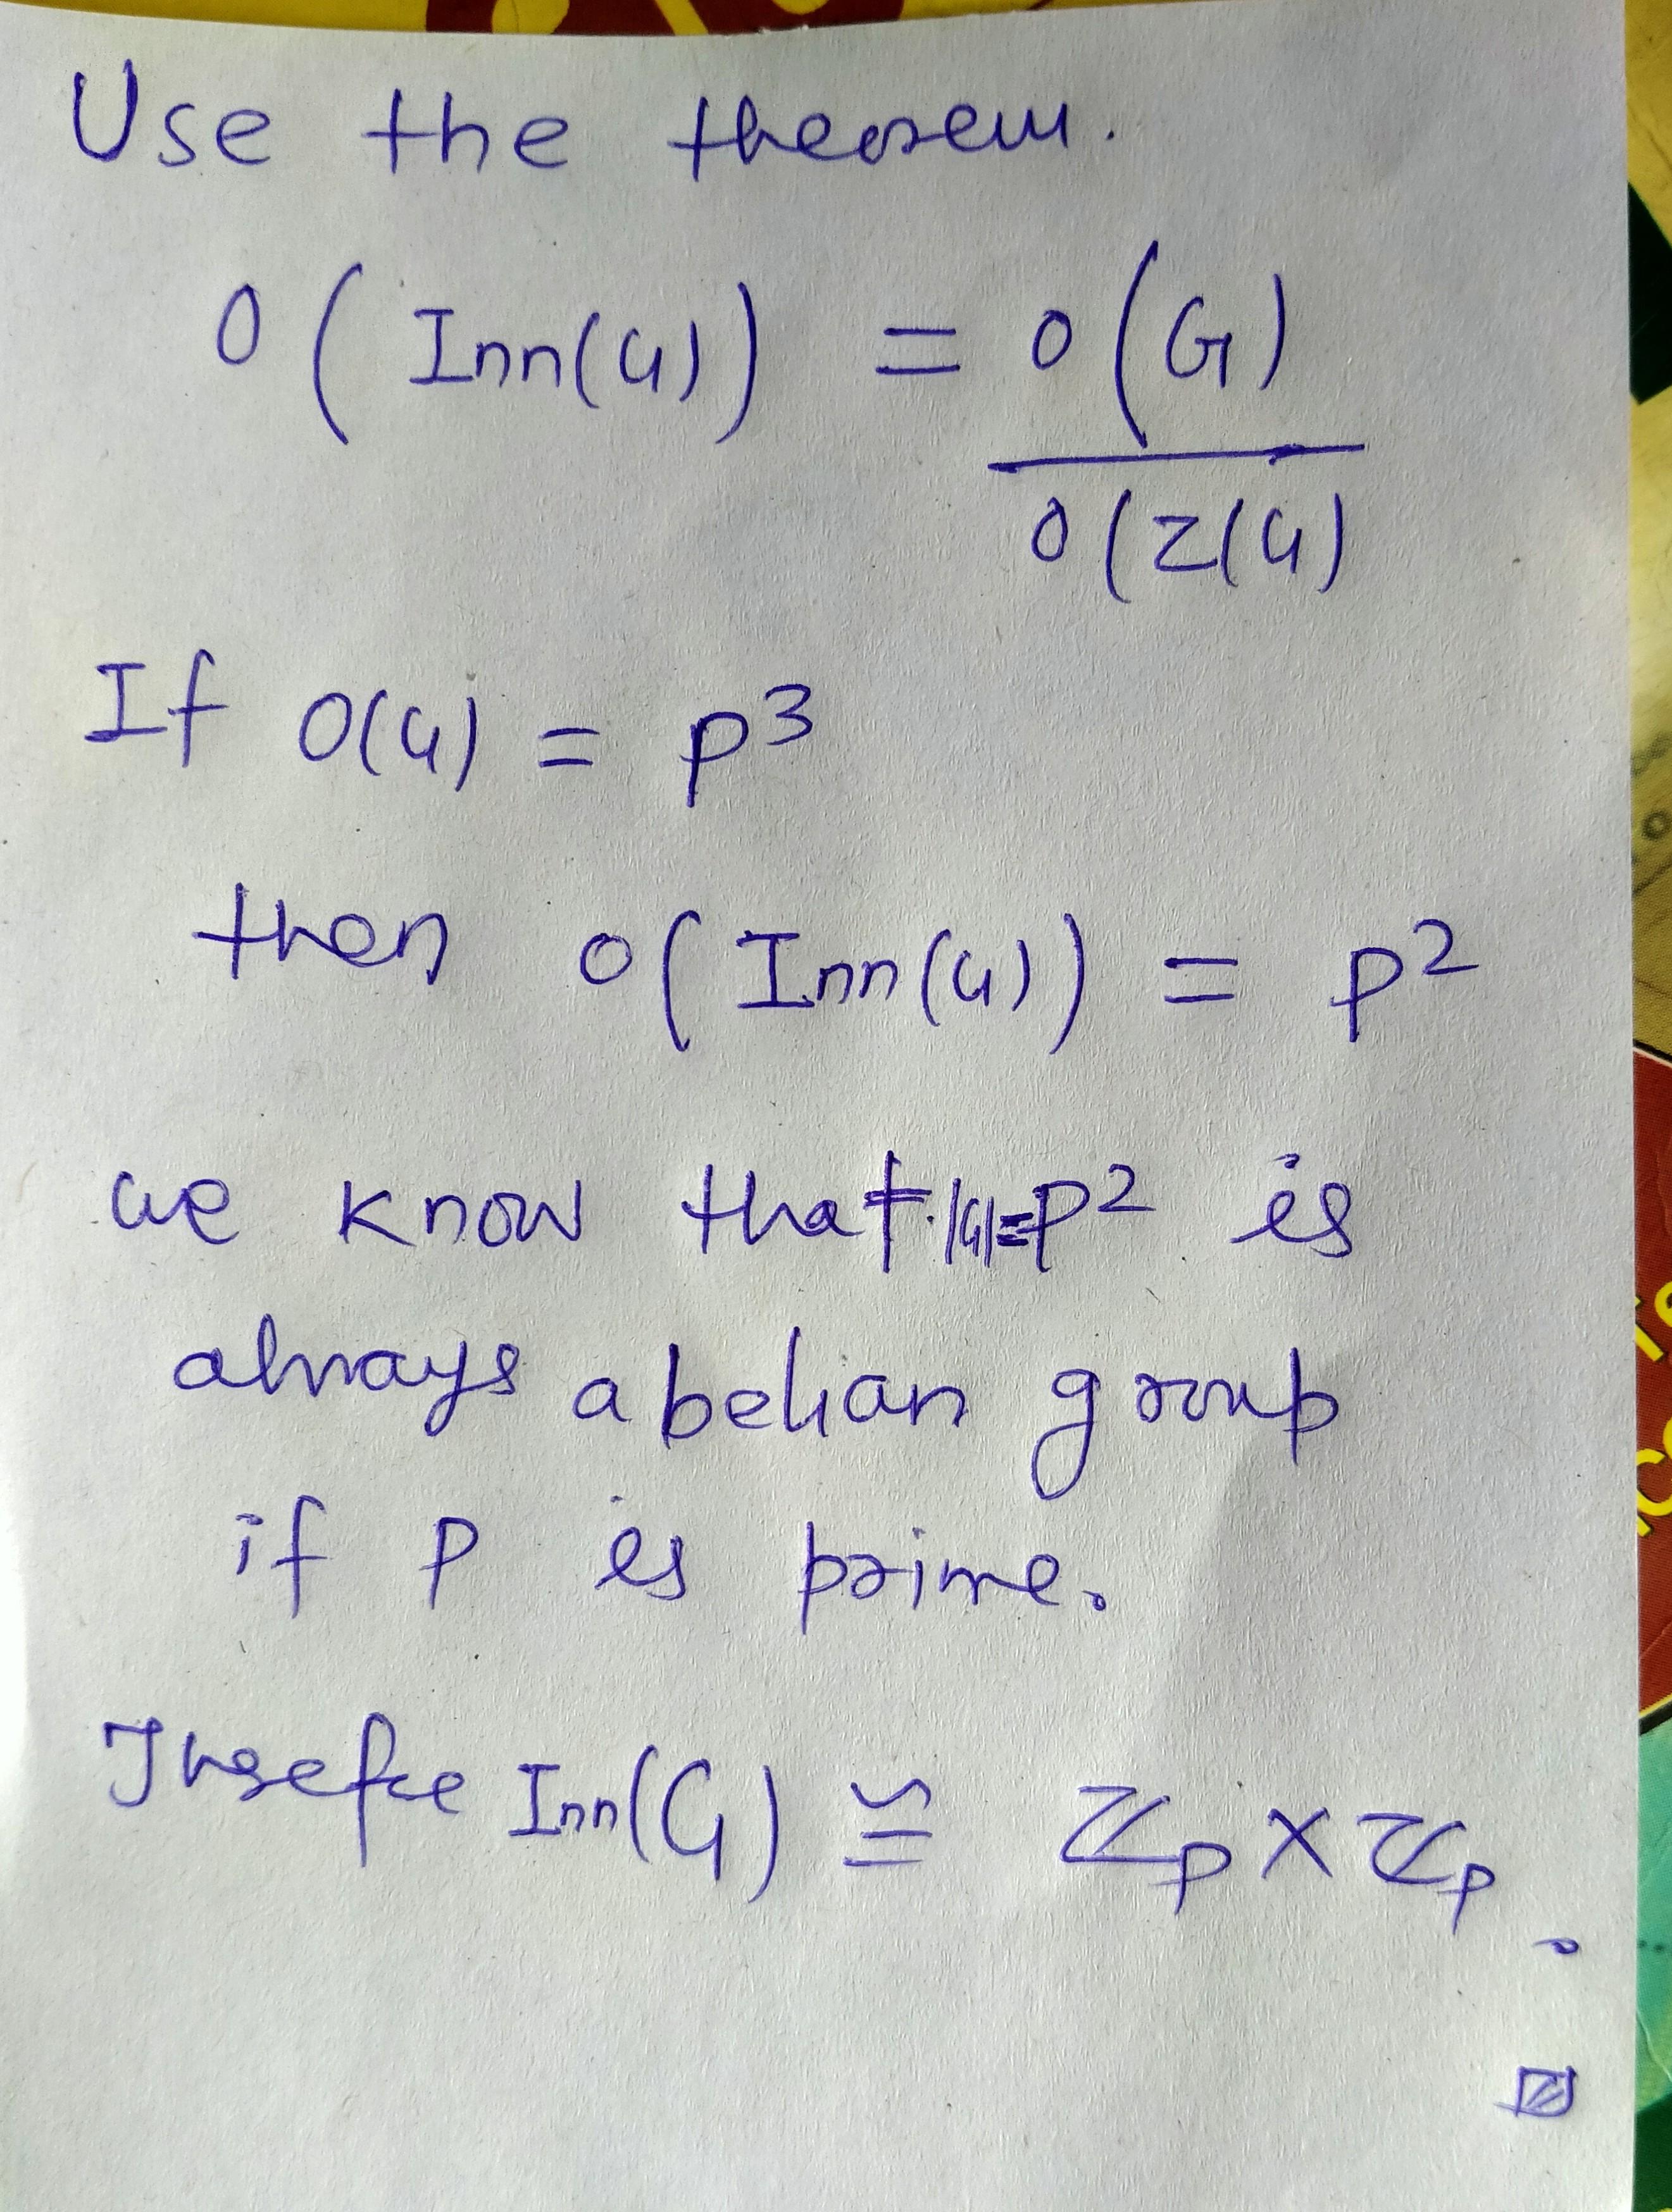 Use the theorem.
O(Inn(G)) = O(G)
O(Z(G)
If O(G) = p³
then O(Inn(G)) = p²
we know that |G|=p² is
always abelian group
if p is prime.
Therefore Inn(G) ≅ ℤp × ℤp.